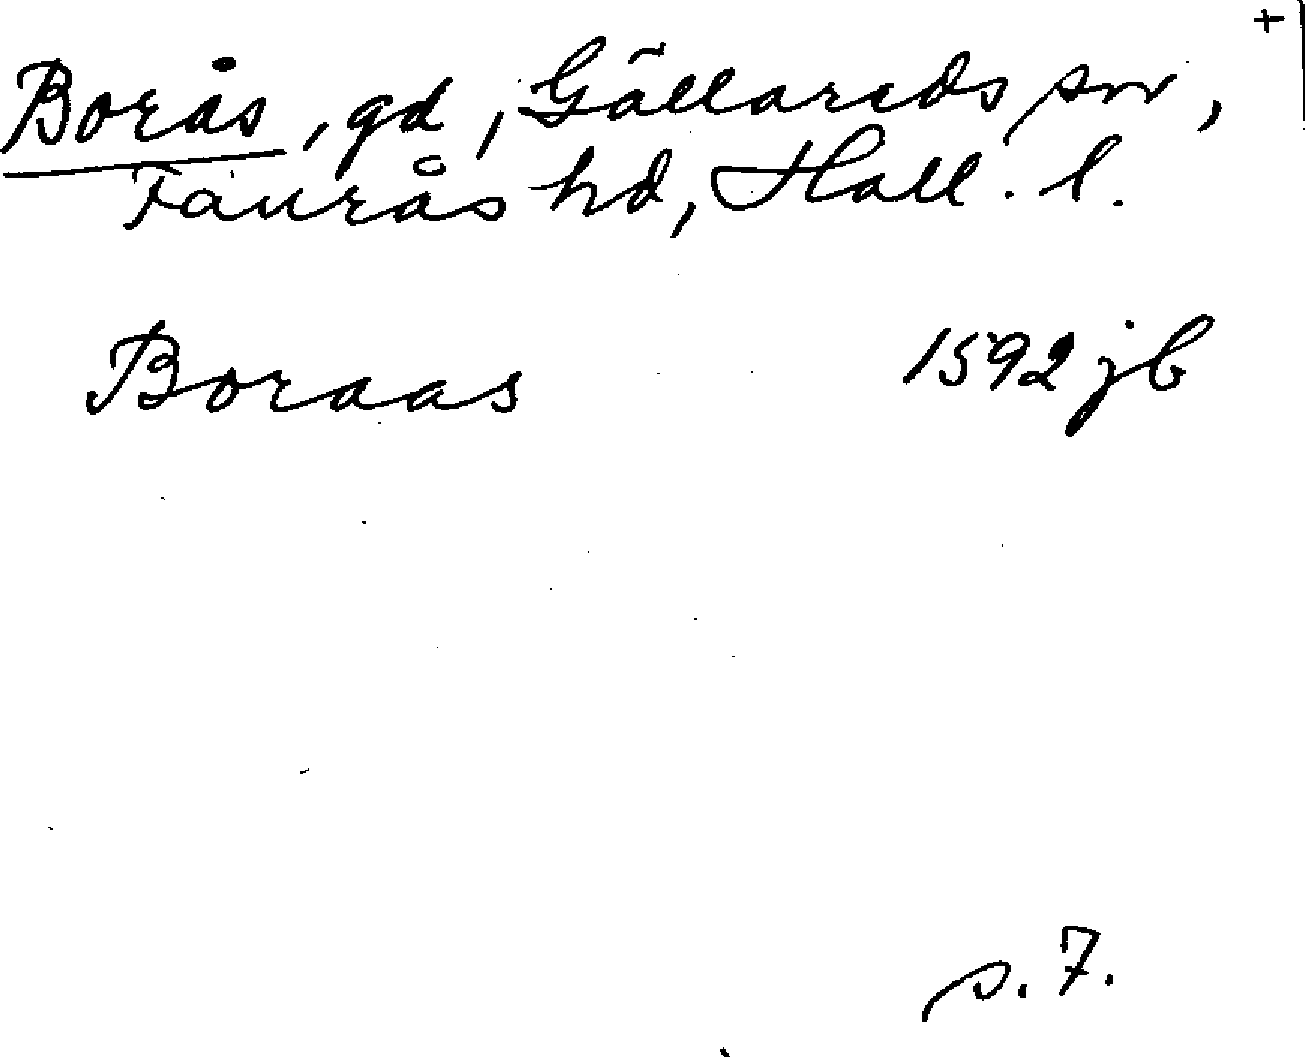 +
Borås, gd, Gällareds sn,
Faurås hd, Hall. l.
Boraas 1592 jb
s. 7.